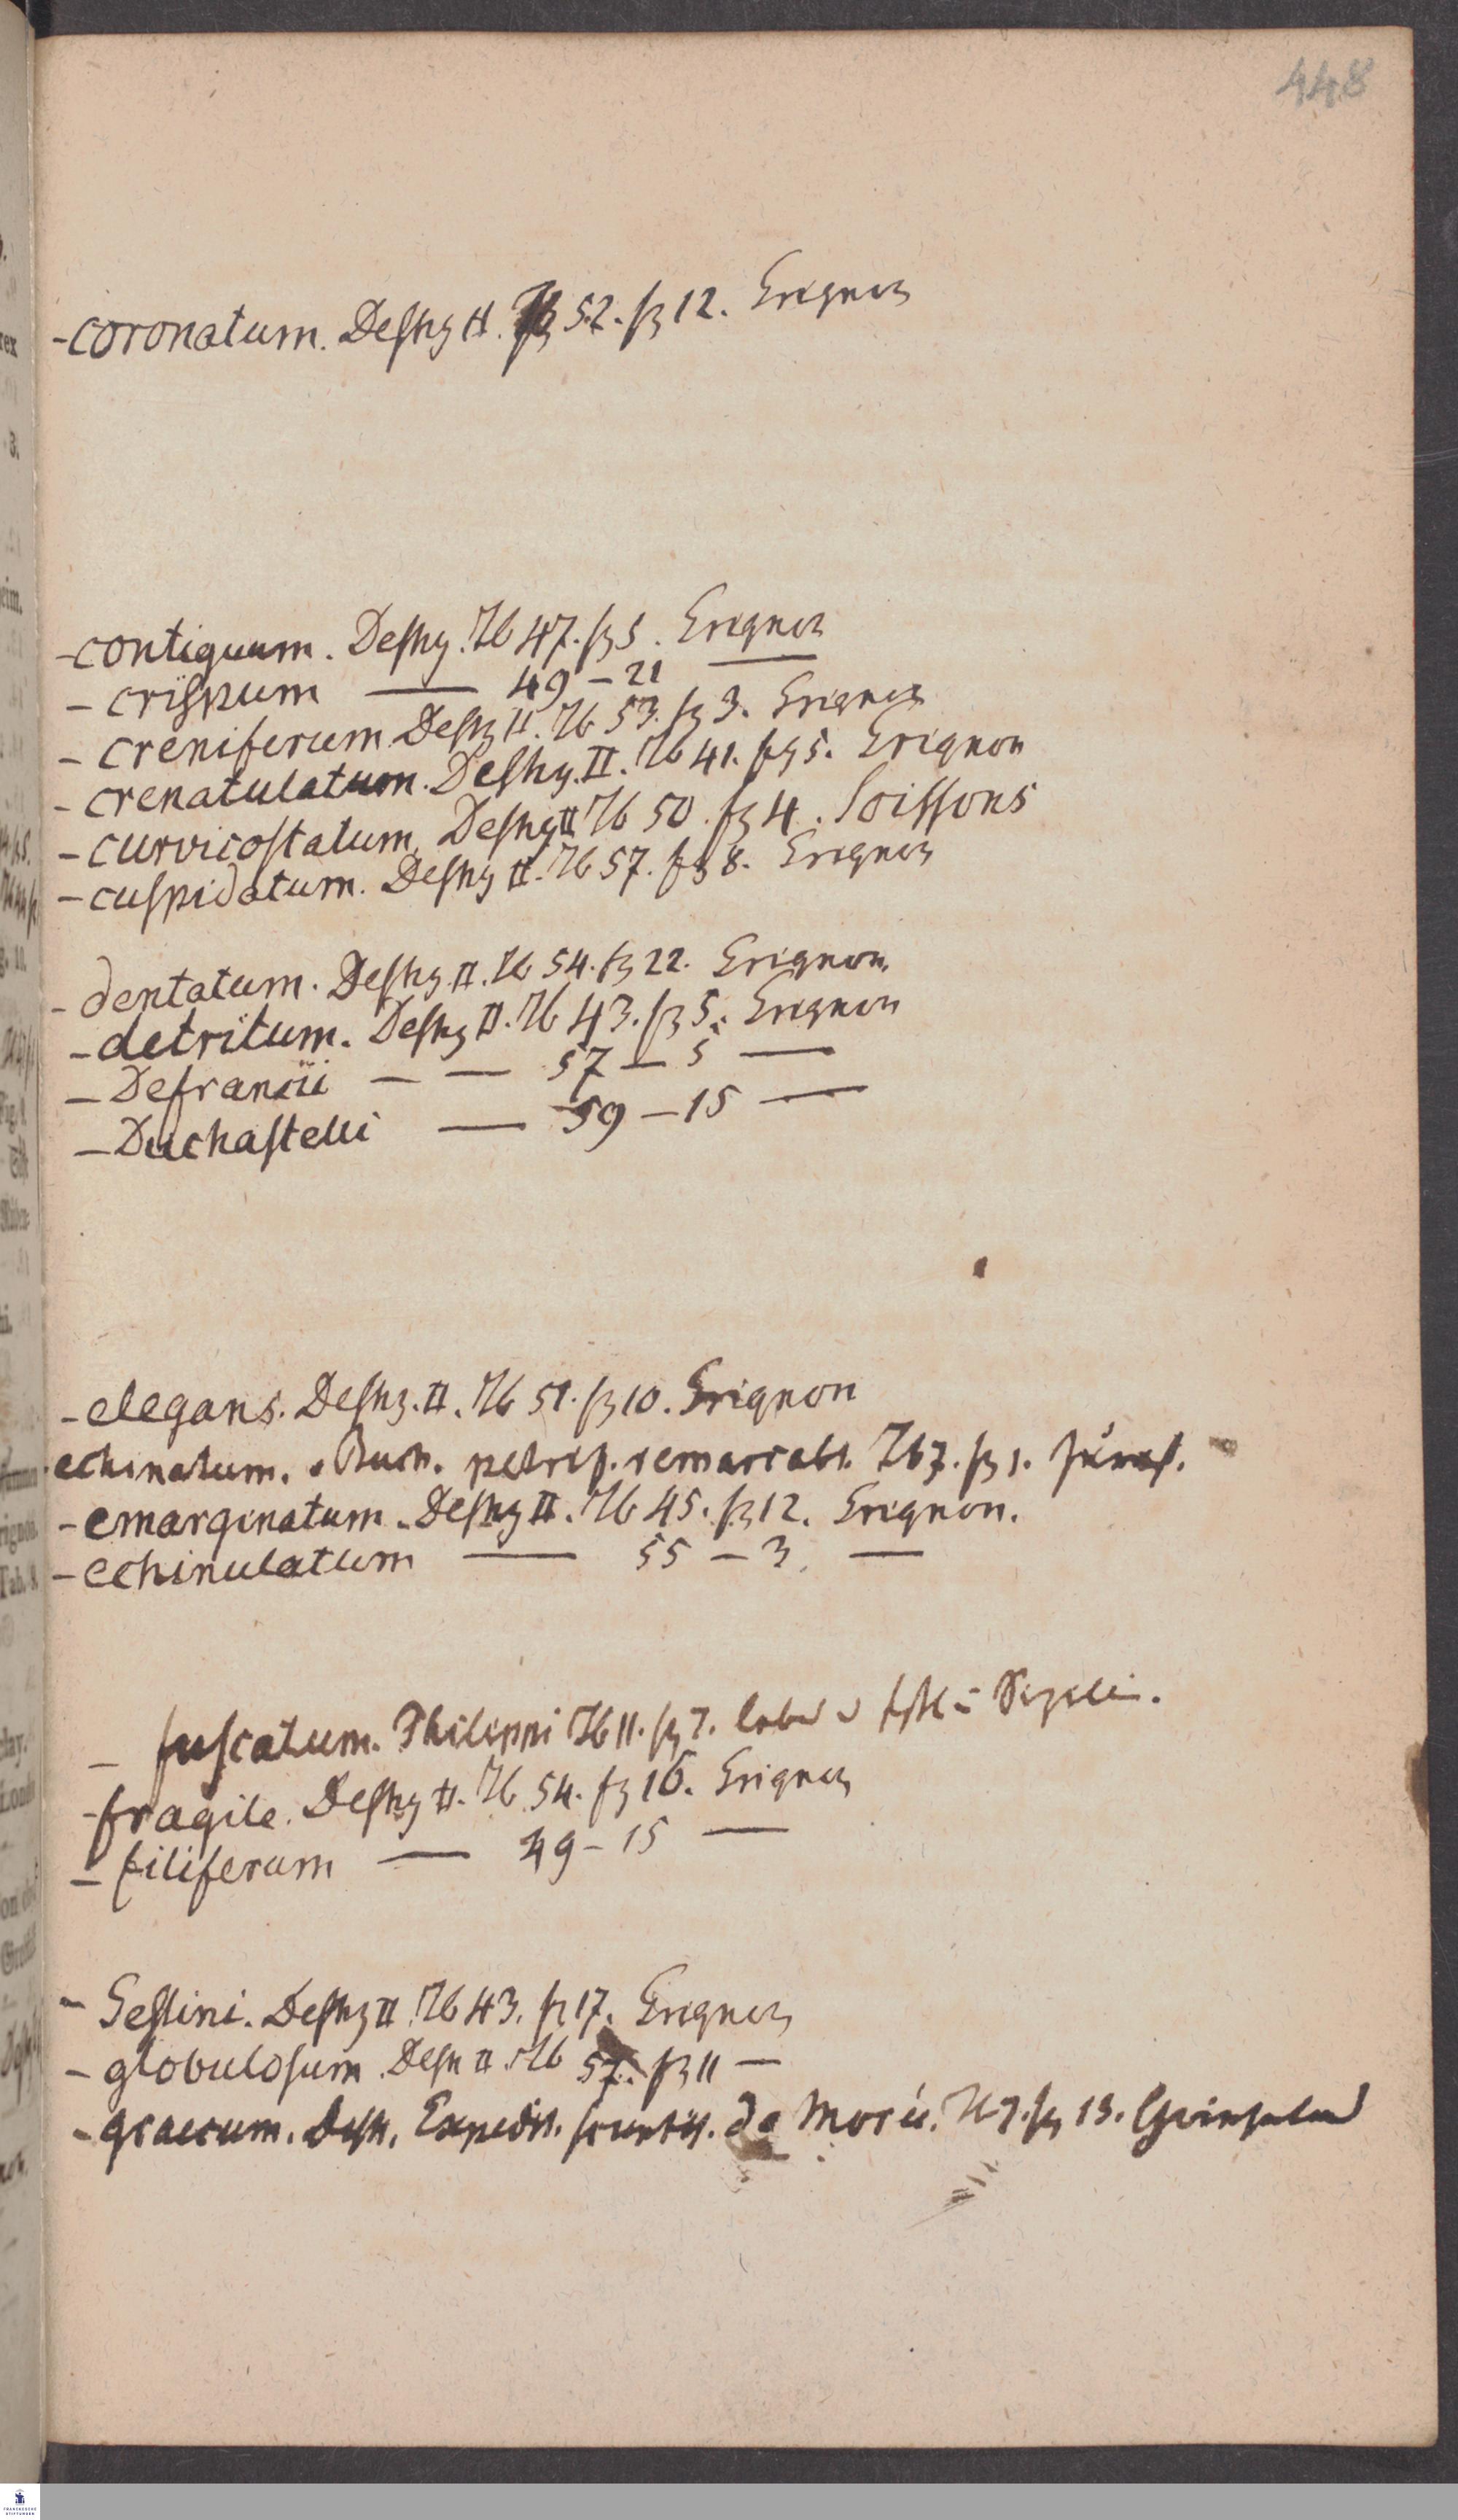 448
-coronatum. Deshy II. Tb 52. fg 12. Grignon
-contiguum. Deshy. Tb 47. fg 5. Grignon
- crispum —— 49 – 21 ——
- creniferum Deshy II. Tb 53. fg 3. Grignon
- crenatulatum. Deshy. II. Tb 41. fg 5. Grignon
- curvicostatum. Deshy II Tb 50. fg 4. Soissons
- cuspidatum. Deshy II. Tb 57. fg 8. Grignon
- dentatum. Deshy. II. Tb 54. fg 22. Grignon.
- detritum. Deshy II. Tb 43. fg 5. Grignon
- Defrancii — — 57 – 5 —
- Duchastelli — 59 – 15 —
- elegans. Deshy. II. Tb 51. fg 10. Grignon
echinatum. Buch. petrif. remarcabl. Tb 7. fg 1.
- emarginatum. Deshy II. Tb 45. fg 12. Grignon.
- echinulatum — 55 – 3. —
- fuscatum. Philippi Tb 11. fg 7. Sizilien.
- fragile. Deshy II. Tb 54. fg 16. Grignon
- filiferum — 49 – 15 —
- Geslini. Deshy II Tb 43. fg 17. Grignon
- globulosum. Desh II. Tb 57. fg 11 —
- graecum. Desh. Expedit. scientif. de Morée. Tb 7. fg 13.
FRANCKESCHE
STIFTUNGEN